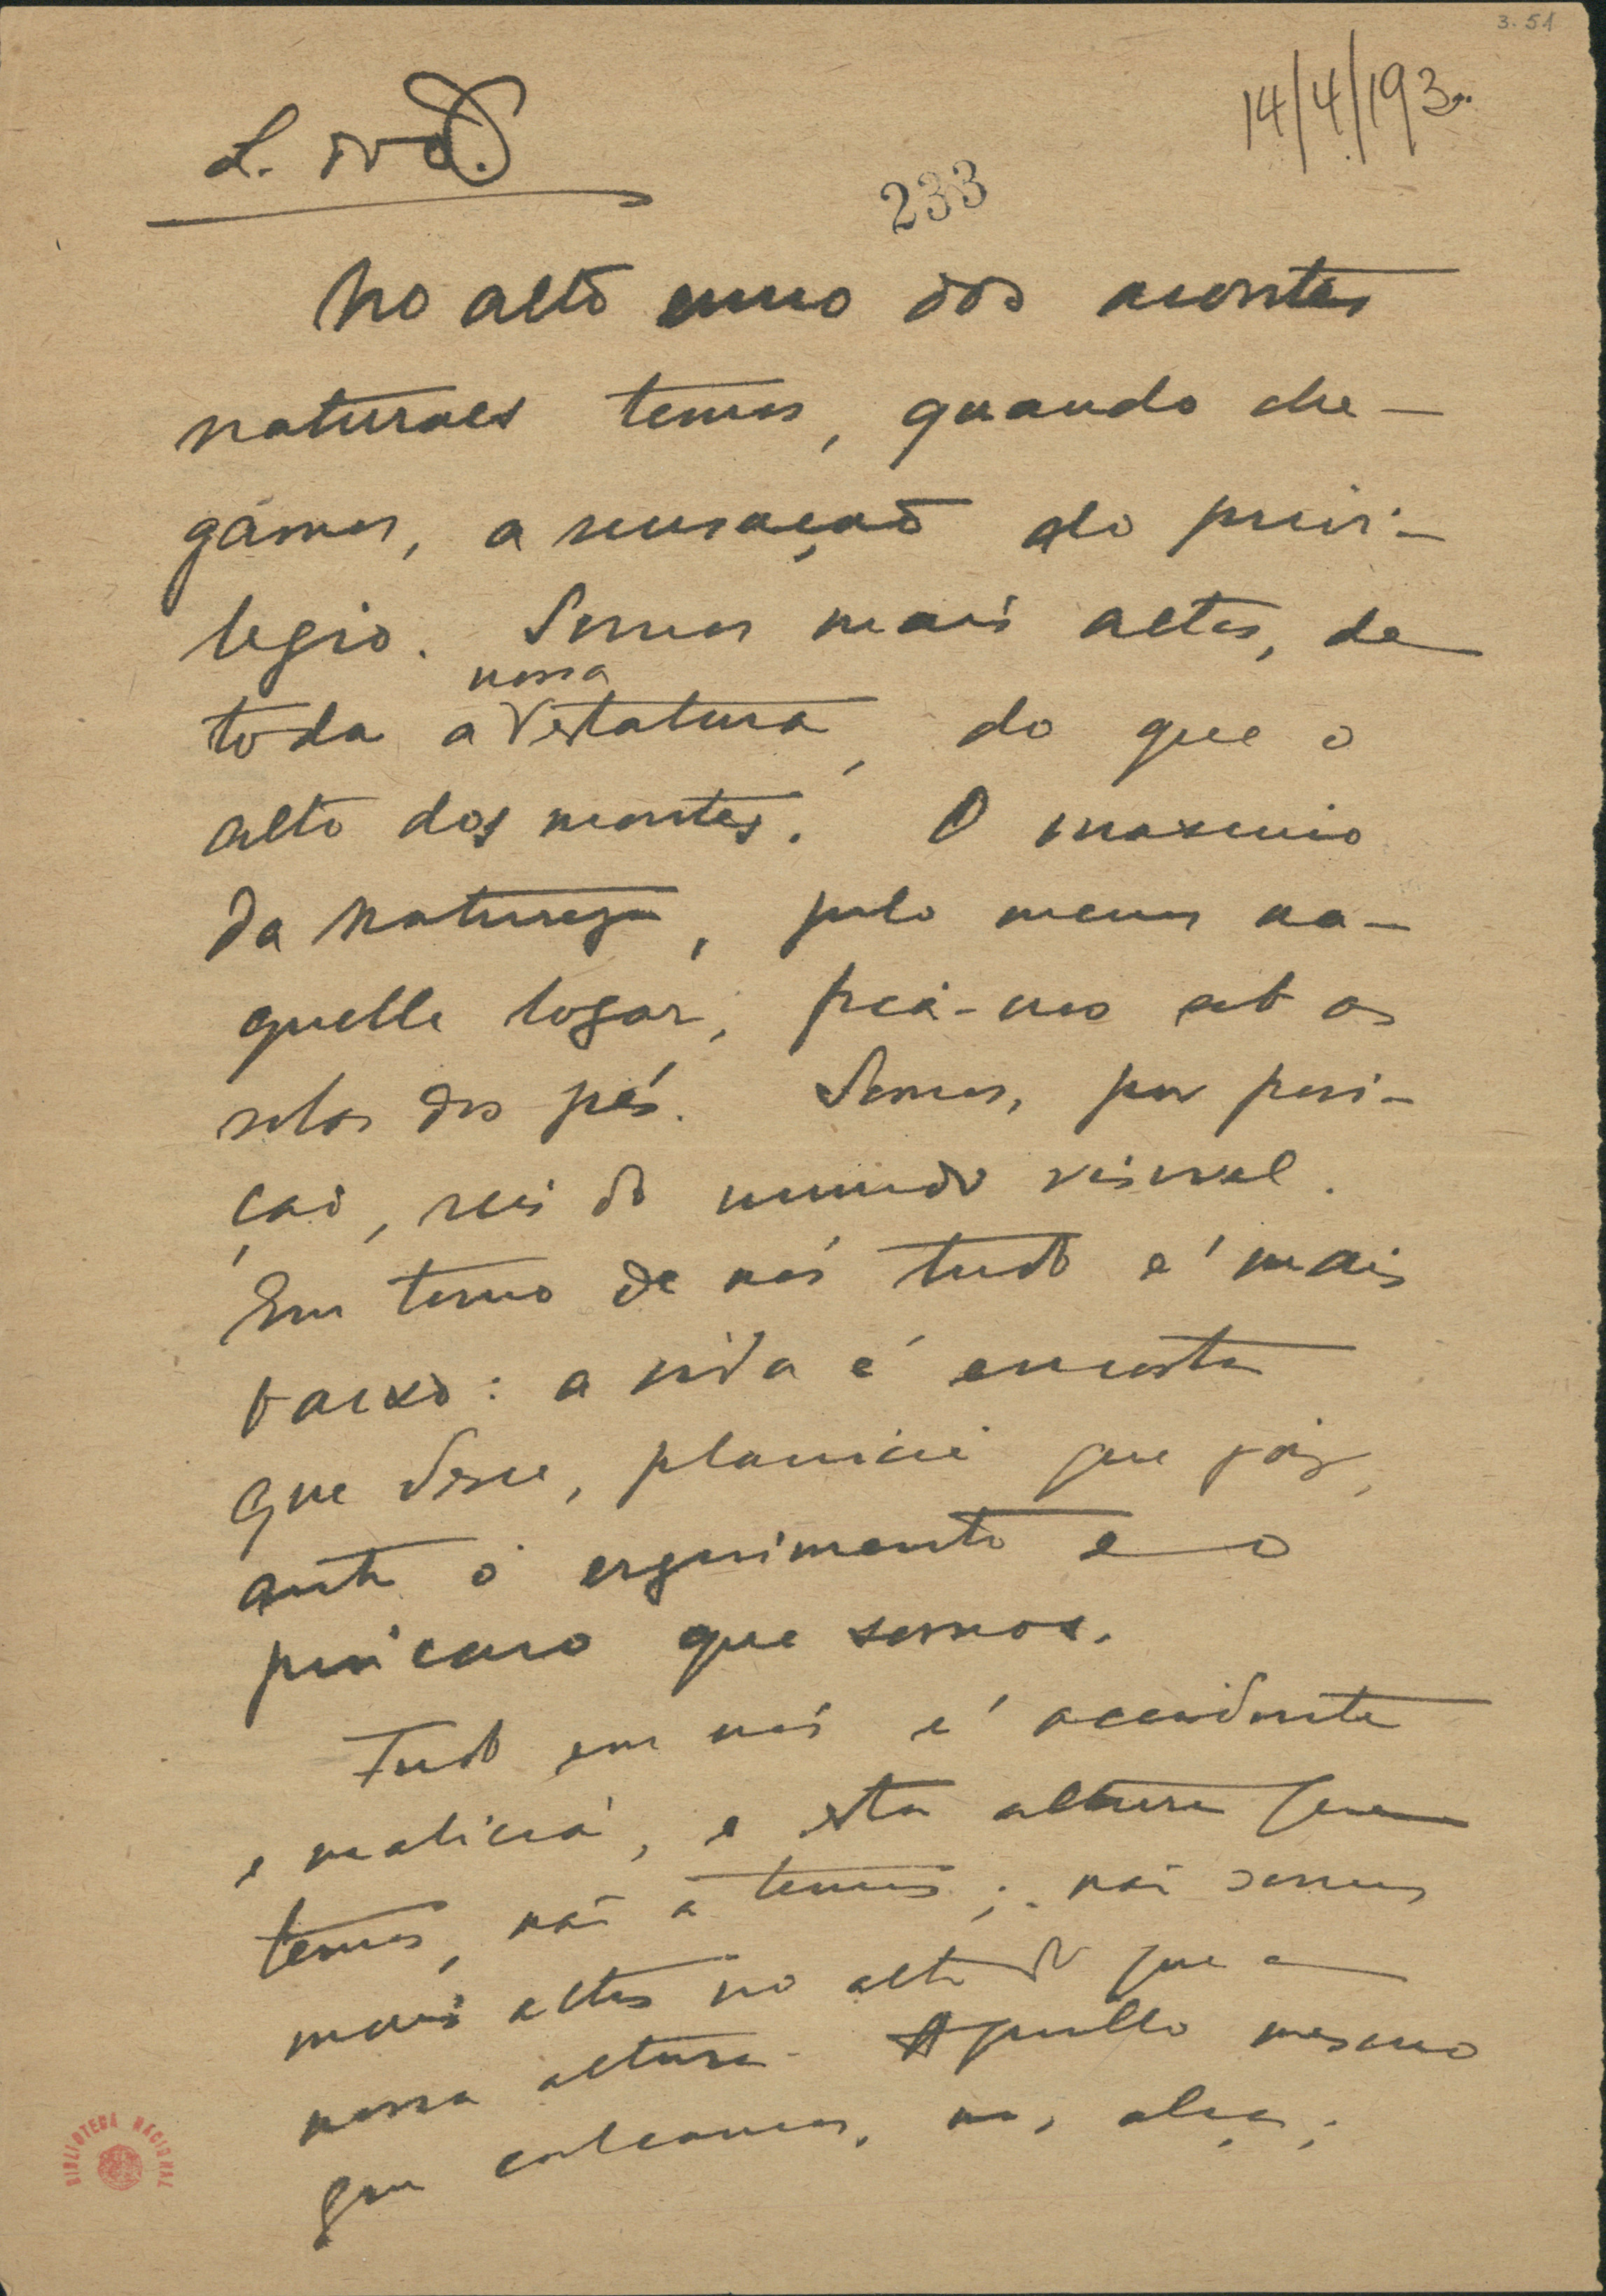 3-51
14/4/1930
L. do D.
233
No alto ermo dos montes
naturaes temos, quando che-
gámos, a sensação do privi-
legio. Somos mais altos, de
nossa
toda a estatura, do que o
alto dos montes. O maximo
da Natureza, pelo menos na-
quelle logar, fica-nos sob as
solas dos pés. Somos, por posi-
ção, reis do mundo visivel.
Em torno de nós tudo é mais
baixo: a vida é encosta
que desce, planicie que jaz,
ante o erguimento e o
pincaro que somos.
Tudo em nós é accidente
e malicia, e esta altura que
temos, não a temos; não somos
mais altos no alto do que a
nossa altura. Aquillo mesmo
que calcamos, nos alça;
BIBLIOTECA NACIONAL